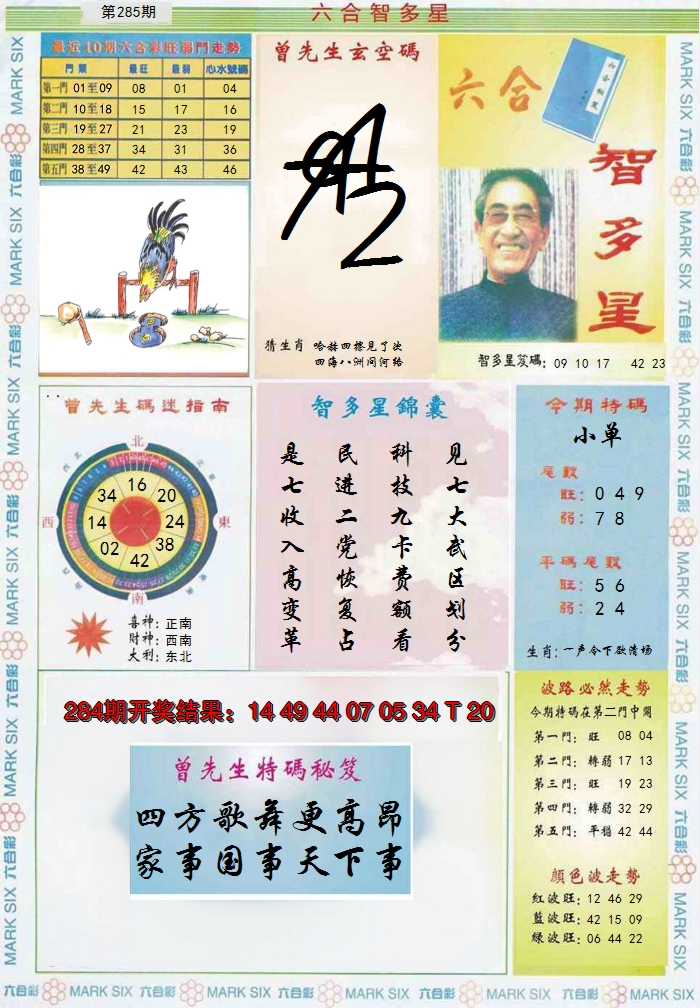 第285期
六合智多星
最近10期六合彩旺弱門走勢
門類 最旺 最弱 心水號碼
第一門 01至09 08 01 04
第二門 10至18 15 17 16
第三門 19至27 21 23 19
第四門 28至37 34 31 36
第五門 38至49 42 43 46
曾先生玄空碼
猜生肖 哈赫四擦見了汝
四海八洲问河络
六合
智多星
智多星笈碼: 09 10 17 42 23
曾先生碼迷指南
北
西
東
南
16
20
24
38
42
02
14
34
喜神: 正南
财神: 西南
大利: 东北
智多星錦囊
见七大武区划分
科技九卡费额看
民进二党恢复占
是七收入高变革
今期特碼
小单
尾數
旺: 0 4 9
弱: 7 8
平碼尾數
旺: 5 6
弱: 2 4
生肖: 一声令下欲清场
284期开奖结果: 14 49 44 07 05 34 T 20
曾先生特碼秘笈
四方歌舞更高昂
家事国事天下事
波路必然走勢
今期特碼在第二門中開
第一門: 旺 08 04
第二門: 轉弱 17 13
第三門: 旺 19 23
第四門: 轉弱 32 29
第五門: 平穩 42 44
顏色波走勢
紅波旺: 12 46 29
藍波旺: 42 15 09
綠波旺: 06 44 22
MARK SIX 六合彩